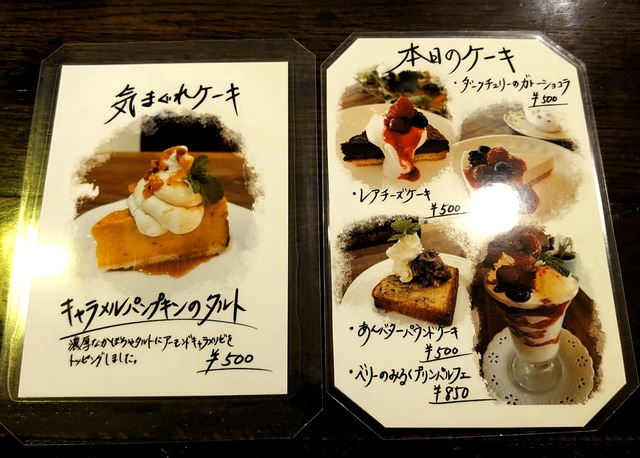 気まぐれケーキ
キャラメルパンプキンのタルト
濃厚なかぼちゃタルトにアーモンドキャラメリゼを
トッピングしました。
¥500
本日のケーキ
・ダークチェリーのガトーショコラ
¥500
・レアチーズケーキ
¥500
・あんバターパウンドケーキ
¥500
・ベリーのみるくプリンパルフェ
¥850